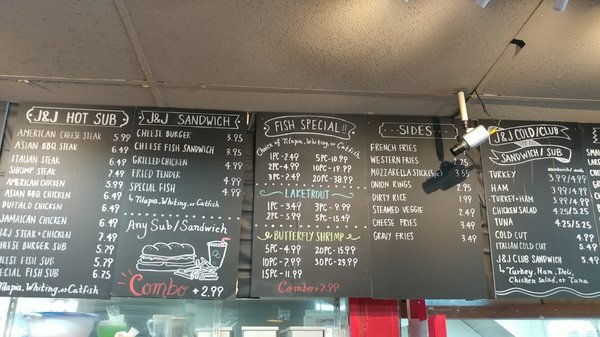 J&J HOT SUB
AMERICAN CHEESE STEAK 5.99
ASIAN BBQ STEAK 6.49
ITALIAN STEAK 6.49
SHRIMP STEAK 7.49
AMERICAN CHICKEN 5.99
ASIAN BBQ CHICKEN 6.49
BUFFALO CHICKEN 6.49
JAMAICAN CHICKEN 6.49
J&J STEAK + CHICKEN 7.49
CHEESE BURGER SUB
CHEESE FISH SUB
SPECIAL FISH SUB 6.75
TILAPIA, WHITING or CATFISH
J&J SANDWICH
CHEESE BURGER 3.95
CHEESE FISH SANDWICH 3.95
GRILLED CHICKEN 4.99
FRIED TENDER 4.99
SPECIAL FISH 4.99
TILAPIA, WHITING or CATFISH
Any Sub/Sandwich
COMBO + 2.99
FISH SPECIAL!!
Choice of Tilapia, Whiting, or Catfish
1PC - 2.49 5PC - 10.99
2PC - 4.99
3PC - 7.49 20PC - 38.99
LAKETROUT
1PC - 3.49
2PC - 5.99 5PC - 15.49
BUTTERFLY SHRIMP
5PC - 4.99 20PC - 15.99
10PC - 7.99 30PC - 23.99
15PC - 11.99
COMBO + 2.99
SIDES
FRENCH FRIES
WESTERN FRIES
MOZZARELLA STICK
ONION RINGS
DIRTY RICE 1.99
STEAMED VEGGIE 2.49
CHEESE FRIES 3.49
GRAVY FRIES 3.49
J&J COLD/CLUB
SANDWICH/SUB
sandwich/sub
TURKEY 3.99/4.99
HAM 3.99/4.99
TURKEY+HAM 3.99/4.99
CHICKEN SALAD 4.25/5.25
TUNA 4.25/5.25
COLD CUT 4.99
ITALIAN COLD CUT 5.49
J&J CLUB 5.49
Turkey, Ham, Deli,
Chicken Salad, or Tuna